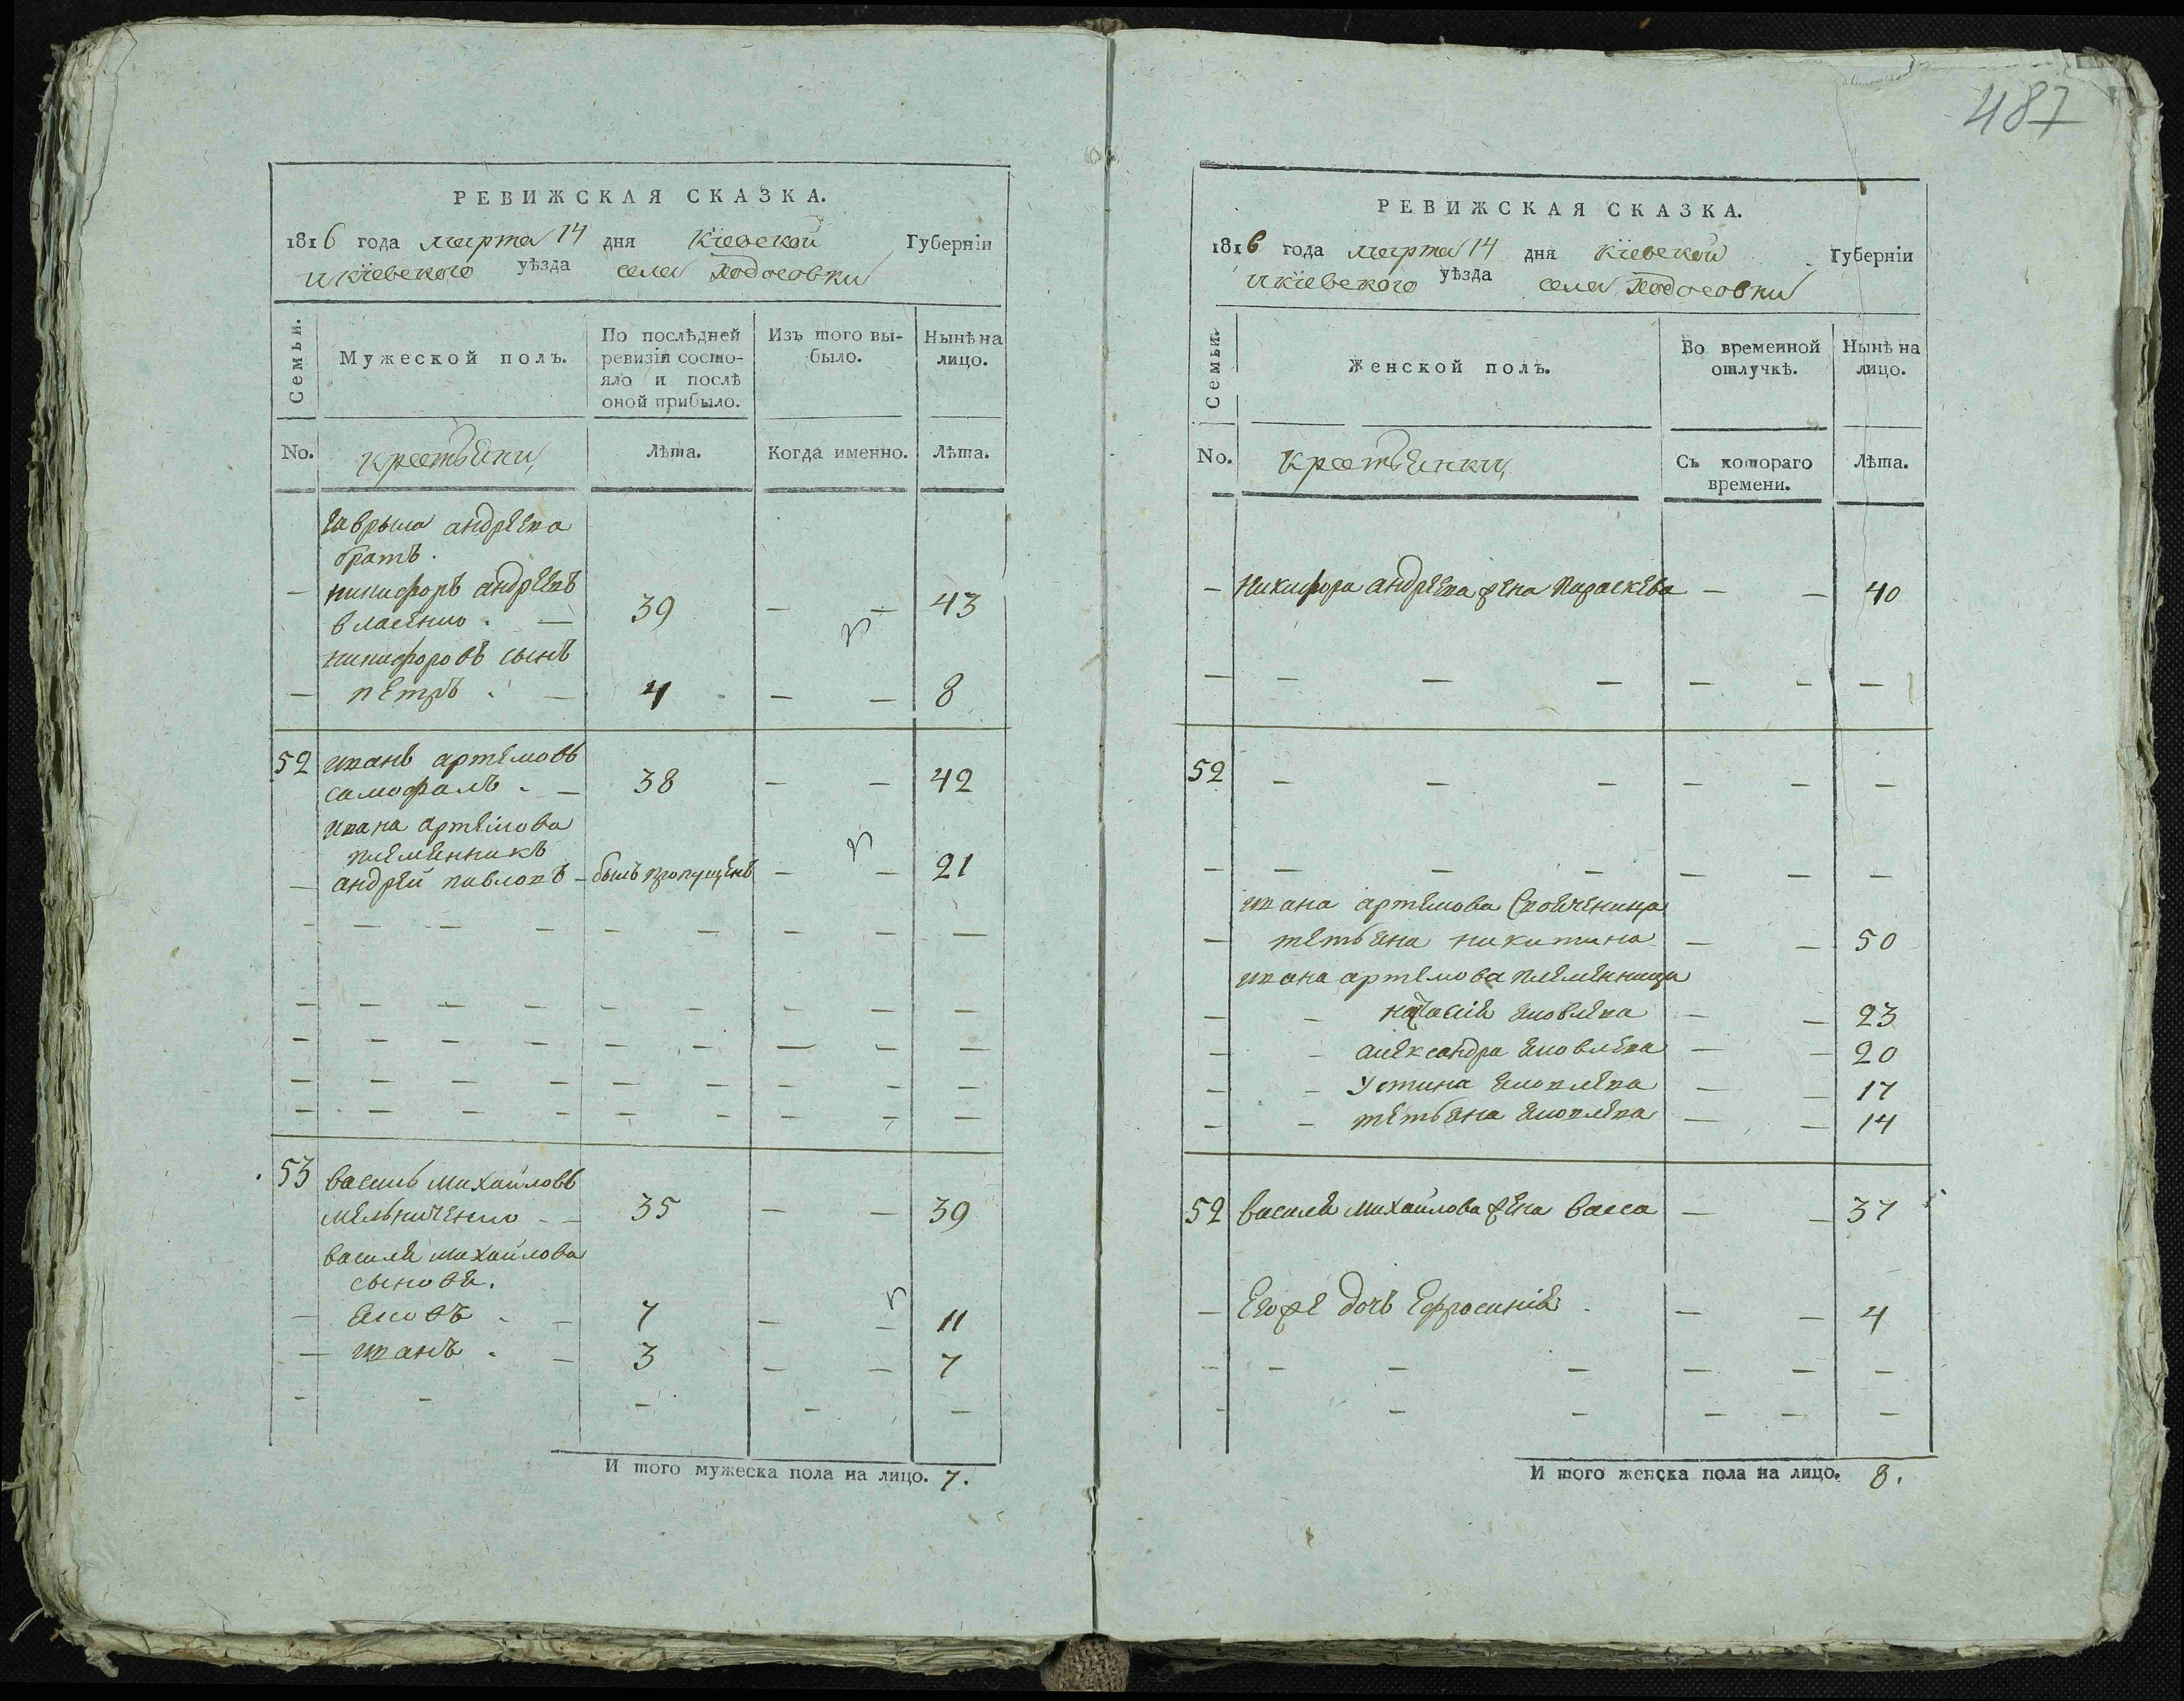 РЕВИЖСКАЯ СКАЗКА.
1816 года марта 14 дня Кіевской Губерніи
и кіевского уѣзда села Ходосовки
Семьи.
Мужеской полъ.
По послѣдней ревизіи состо-
яло и послѣ
оной прибыло.
Изъ того вы-
было.
Нынѣ на
лицо.
No.
крестьяни
Лѣта.
Когда именно.
Лѣта.
Гаврыла андреева
братъ.
— никифоръ андреевъ
власенко . — 39 — — 43
никифоровъ сынъ
— петръ . — 4 — — 8
52 иванъ артемовъ
самофалъ . — 38 — — 42
ивана артемова
племенникъ
— андрей павловъ — былъ пропущенъ — — 21
53 василь михайловъ
мельниченко — — 35 — — 39
василя михайлова
сыновя.
— яковъ . — 7 — — 11
— иванъ . — 3 — — 7
И того мужеска пола на лицо. 7.
487
РЕВИЖСКАЯ СКАЗКА.
1816 года марта 14 дня Кіевской Губерніи
и кіевского уѣзда села Ходосовки
Семьи.
Женской полъ.
Во временной
отлучкѣ.
Нынѣ на
лицо.
No.
крестьянки
Съ котораго
времени.
Лѣта.
— Никифора андреева жена Параскева — — 40
52
ивана артемова
— тетьяна никитина — — 50
ивана артемова племенници
— — настасія яковлева — — 23
— — александра яковлева — — 20
— — Устина яковлева — — 17
— — тетьяна яковлева — — 14
52 василя михайлова жена васса — — 37
— Егоже дочь Ефросинія — — 4
И того женска пола на лицо. 8.